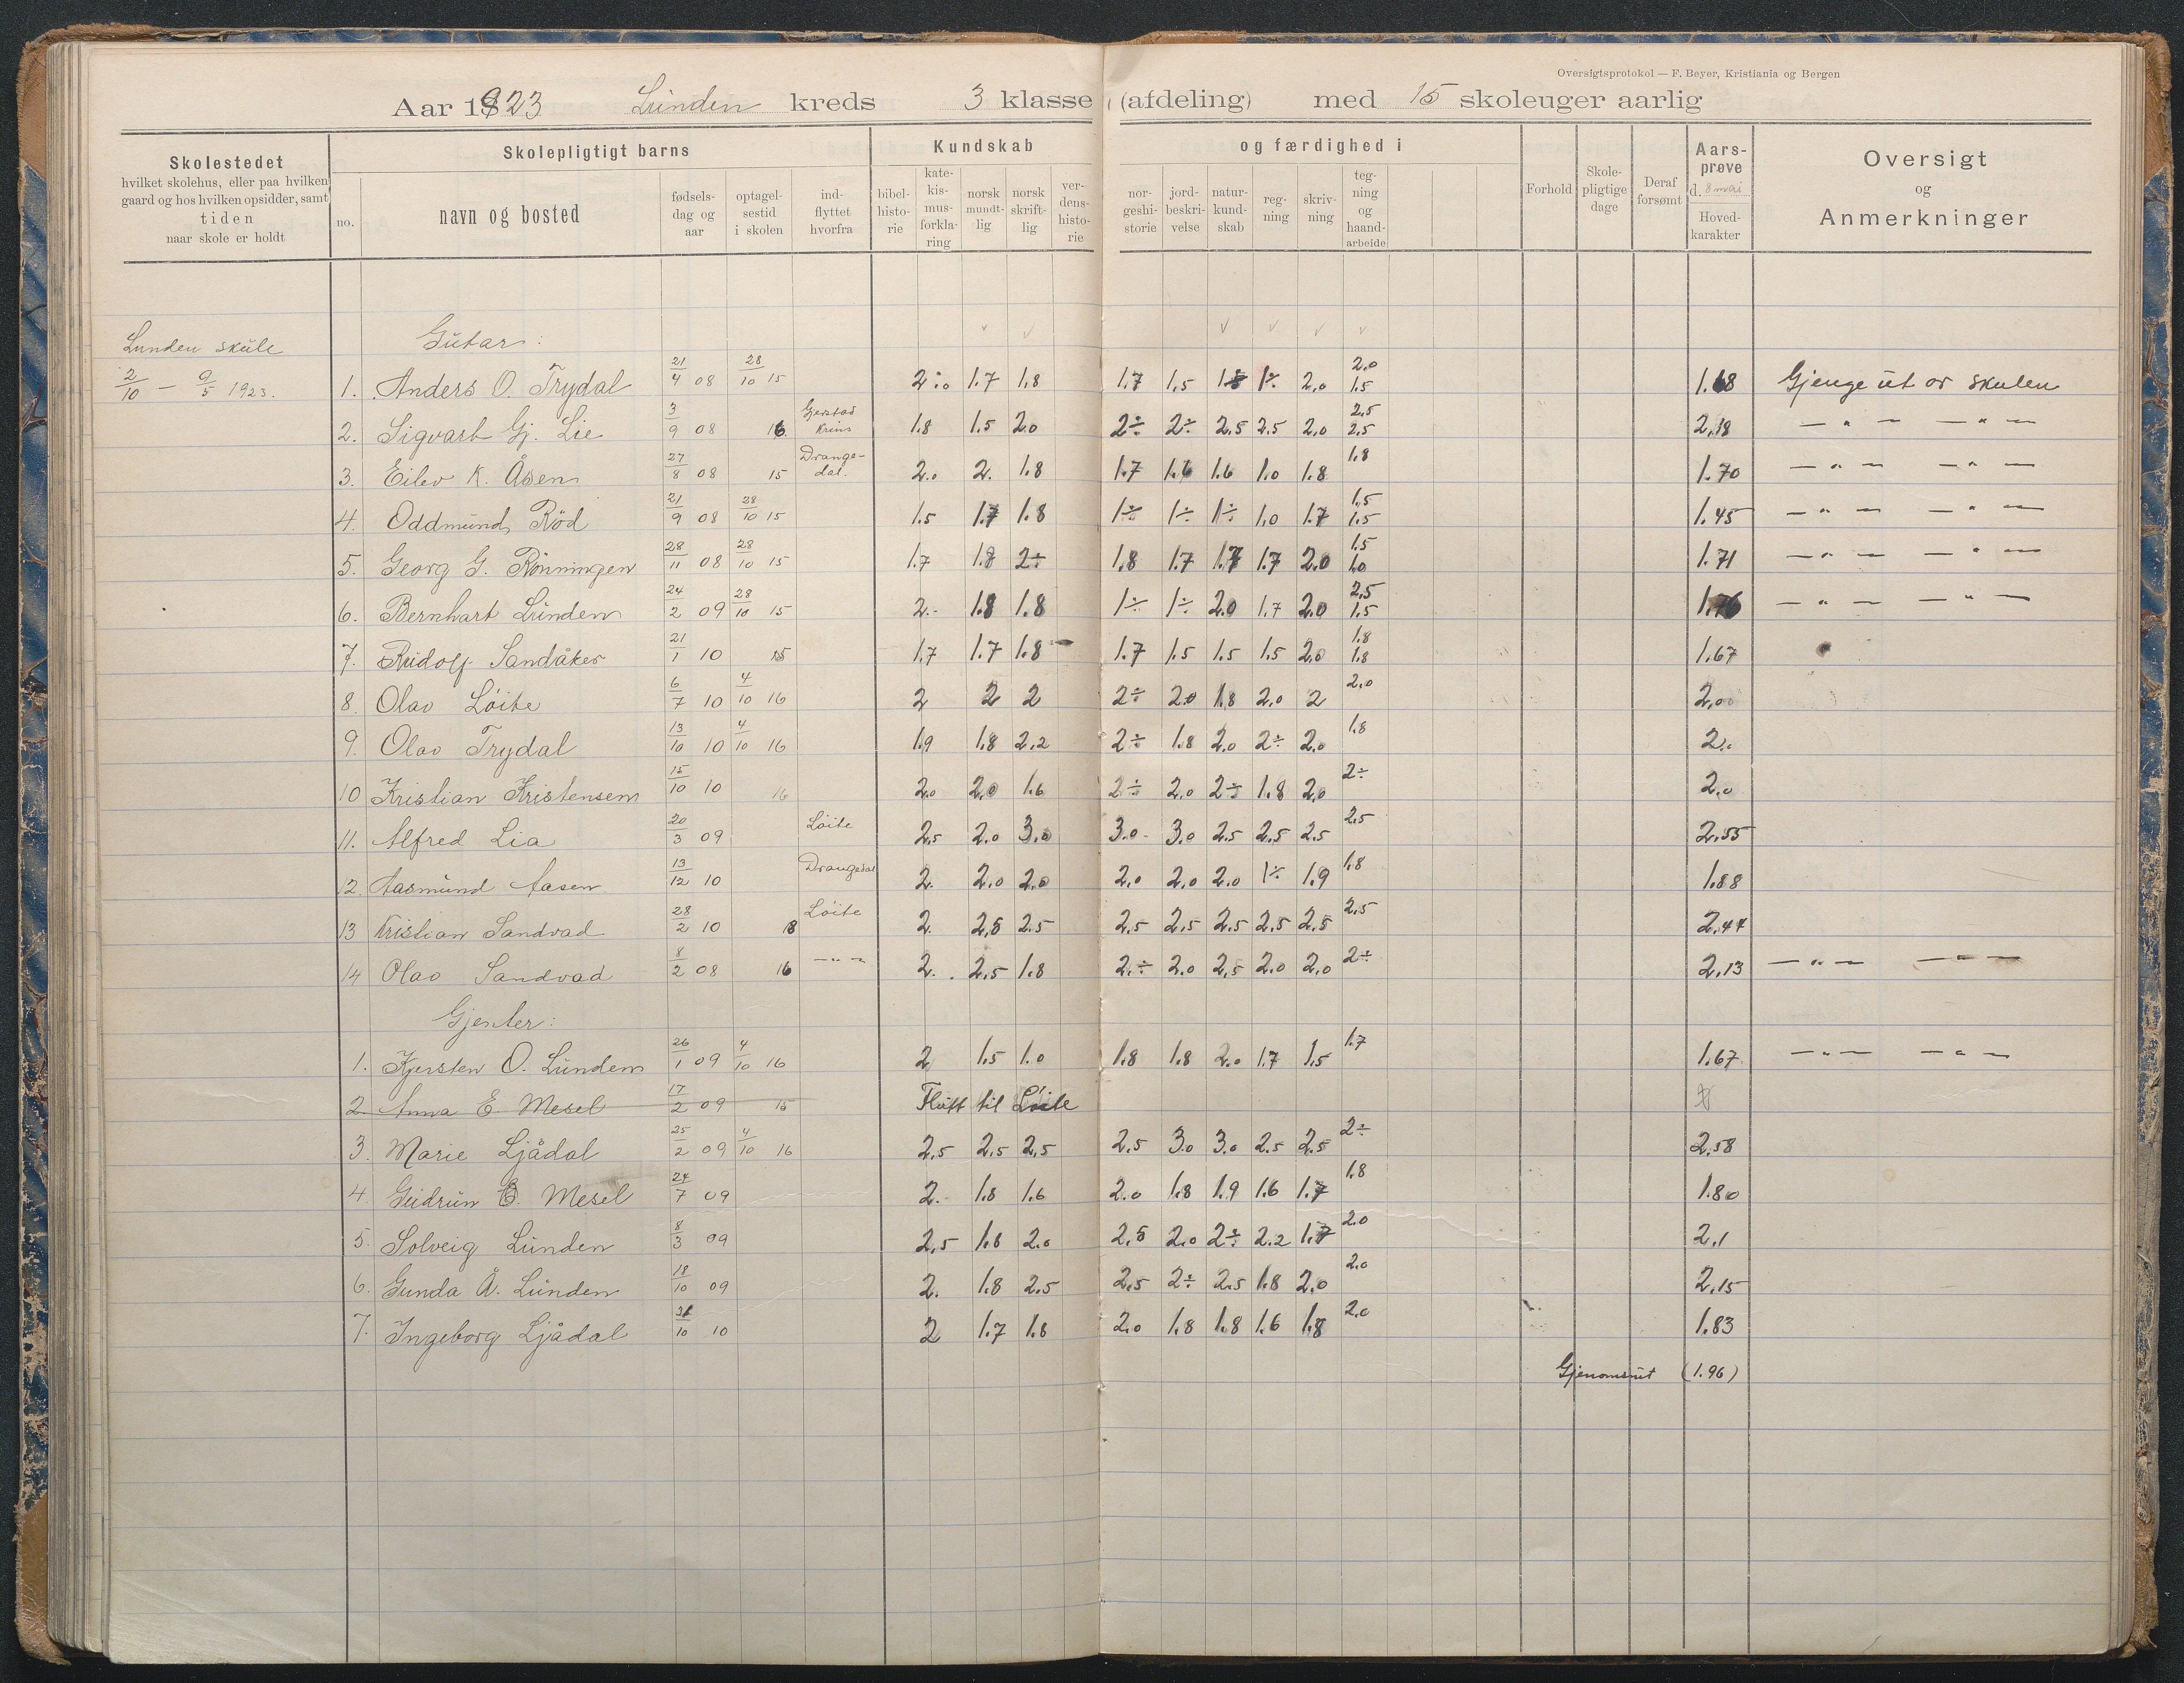 Oversigtsprotokol — F. Beyer, Kristiania og Bergen
Aar 1923 Lunden kreds 3 klasse (afdeling) med 15 skoleuger aarlig
Skolestedet
hvilket skolehus, eller paa hvilken
gaard og hos hvilken opsidder, samt
tiden
naar skole er holdt
Skolepligtigt barns
no.
navn og bosted
fødsels-
dag og
aar
optagel-
sestid
i skolen
ind-
flyttet
hvorfra
Kundskab
bibel-
histo-
rie
kate-
kis-
mus-
forkla-
ring
norsk
mundt-
lig
norsk
skrift-
lig
ver-
dens-
histo-
rie
og færdighed i
nor-
geshi-
storie
jord-
beskri-
velse
natur-
kund-
skab
reg-
ning
skriv-
ning
teg-
ning
og
haand-
arbeide
Forhold
Skole-
pligtige
dage
Deraf
forsømt
Aars-
prøve
d. 8 mai
Hoved-
karakter
Oversigt
og
Anmerkninger
Lunden skule
2/10 — 9/5 1923.
Gutar:
1. Anders O. Trydal 21/4 08 28/10 15 2÷0 1.7 1.8 1.7 1.5 1.8 1÷ 2.0 2.0 1.5 1.68 Gjenge ut or skulen
2. Sigvart Gj. Lie 3/9 08 16 Gjerstad 1.8 1.5 2.0 2÷ 2÷ 2.5 2.5 2.0 2.5 2.5 2.18 — " — — " —
3. Eilev K. Åsen 27/8 08 15 Drange-dal. 2.0 2. 1.8 1.7 1.6 1.6 1.0 1.8 1.8 1.70 — " — — " —
4. Oddmund Röd 21/9 08 28/10 15 1.5 1.7 1.8 1÷ 1÷ 1÷ 1.0 1.7 1.5 1.5 1.45 — " — — " —
5. Georg G. Rönningen 28/11 08 28/10 15 1.7 1.8 2÷ 1.8 1.7 1.7 1.7 2.0 1.5 1.0 1.71 — " — — " —
6. Bernhart Lunden 24/2 09 28/10 15 2.- 1.8 1.8 1÷ 1÷ 2.0 1.7 2.0 2.5 1.5 1.76 — " — — " —
7. Rudolf Sandåker 21/1 10 15 1.7 1.7 1.8 1.7 1.5 1.5 1.5 2.0 1.8 1.8 1.67
8. Olav Löite 6/7 10 4/10 16 2 2 2 2÷ 2.0 1.8 2.0 2 2.0 2.00
9. Olav Trydal 13/10 10 4/10 16 1.9 1.8 2.2 2÷ 1.8 2.0 2÷ 2.0 1.8 2.0
10 Kristian Kristensen 15/10 10 16 2.0 2.0 1.6 2÷ 2.0 2÷ 1.8 2.0 2÷ 2.0
11. Alfred Lia 20/3 09 Löite 2.5 2.0 3.0 3.0 3.0 2.5 2.5 2.5 2.5 2.55
12. Aasmund Aasen 13/12 10 Drangedal 2. 2.0 2.0 2.0 2.0 2.0 1÷ 1.9 1.8 1.88
13 Kristian Sandvad 28/2 10 18 Löite 2. 2.5 2.5 2.5 2.5 2.5 2.5 2.5 2.5 2.44
14 Olav Sandvad 8/2 08 16 — " — 2. 2.5 1.8 2.÷ 2.0 2.5 2.0 2.0 2÷ 2.13 — " — — " —
Gjenter:
1. Kjersten O. Lunden 26/1 09 4/10 16 2 1.5 1.0 1.8 1.8 2.0 1.7 1.5 1.7 1.67 — " — — " —
2. Anna E. Mesel 17/2 09 15 Flutt til Löite
3. Marie Ljådal 25/2 09 4/10 16 2.5 2.5 2.5 2.5 3.0 3.0 2.5 2.5 2÷ 2.58
4. Gudrun E. Mesel 24/7 09 2. 1.8 1.6 2.0 1.8 1.9 1.6 1.7 1.8 1.80
5. Solveig Lunden 8/3 09 2.5 1.8 2.0 2.5 2.0 2÷ 2.2 1.7 2.0 2.1
6. Gunda Å. Lunden 18/10 09 2. 1.8 2.5 2.5 2÷ 2.5 1.8 2.0 2.0 2.15
7. Ingeborg Ljådal 31/10 10 2 1.7 1.8 2.0 1.8 1.8 1.6 1.8 2.0 1.83
Gjenomsnit (1.96)